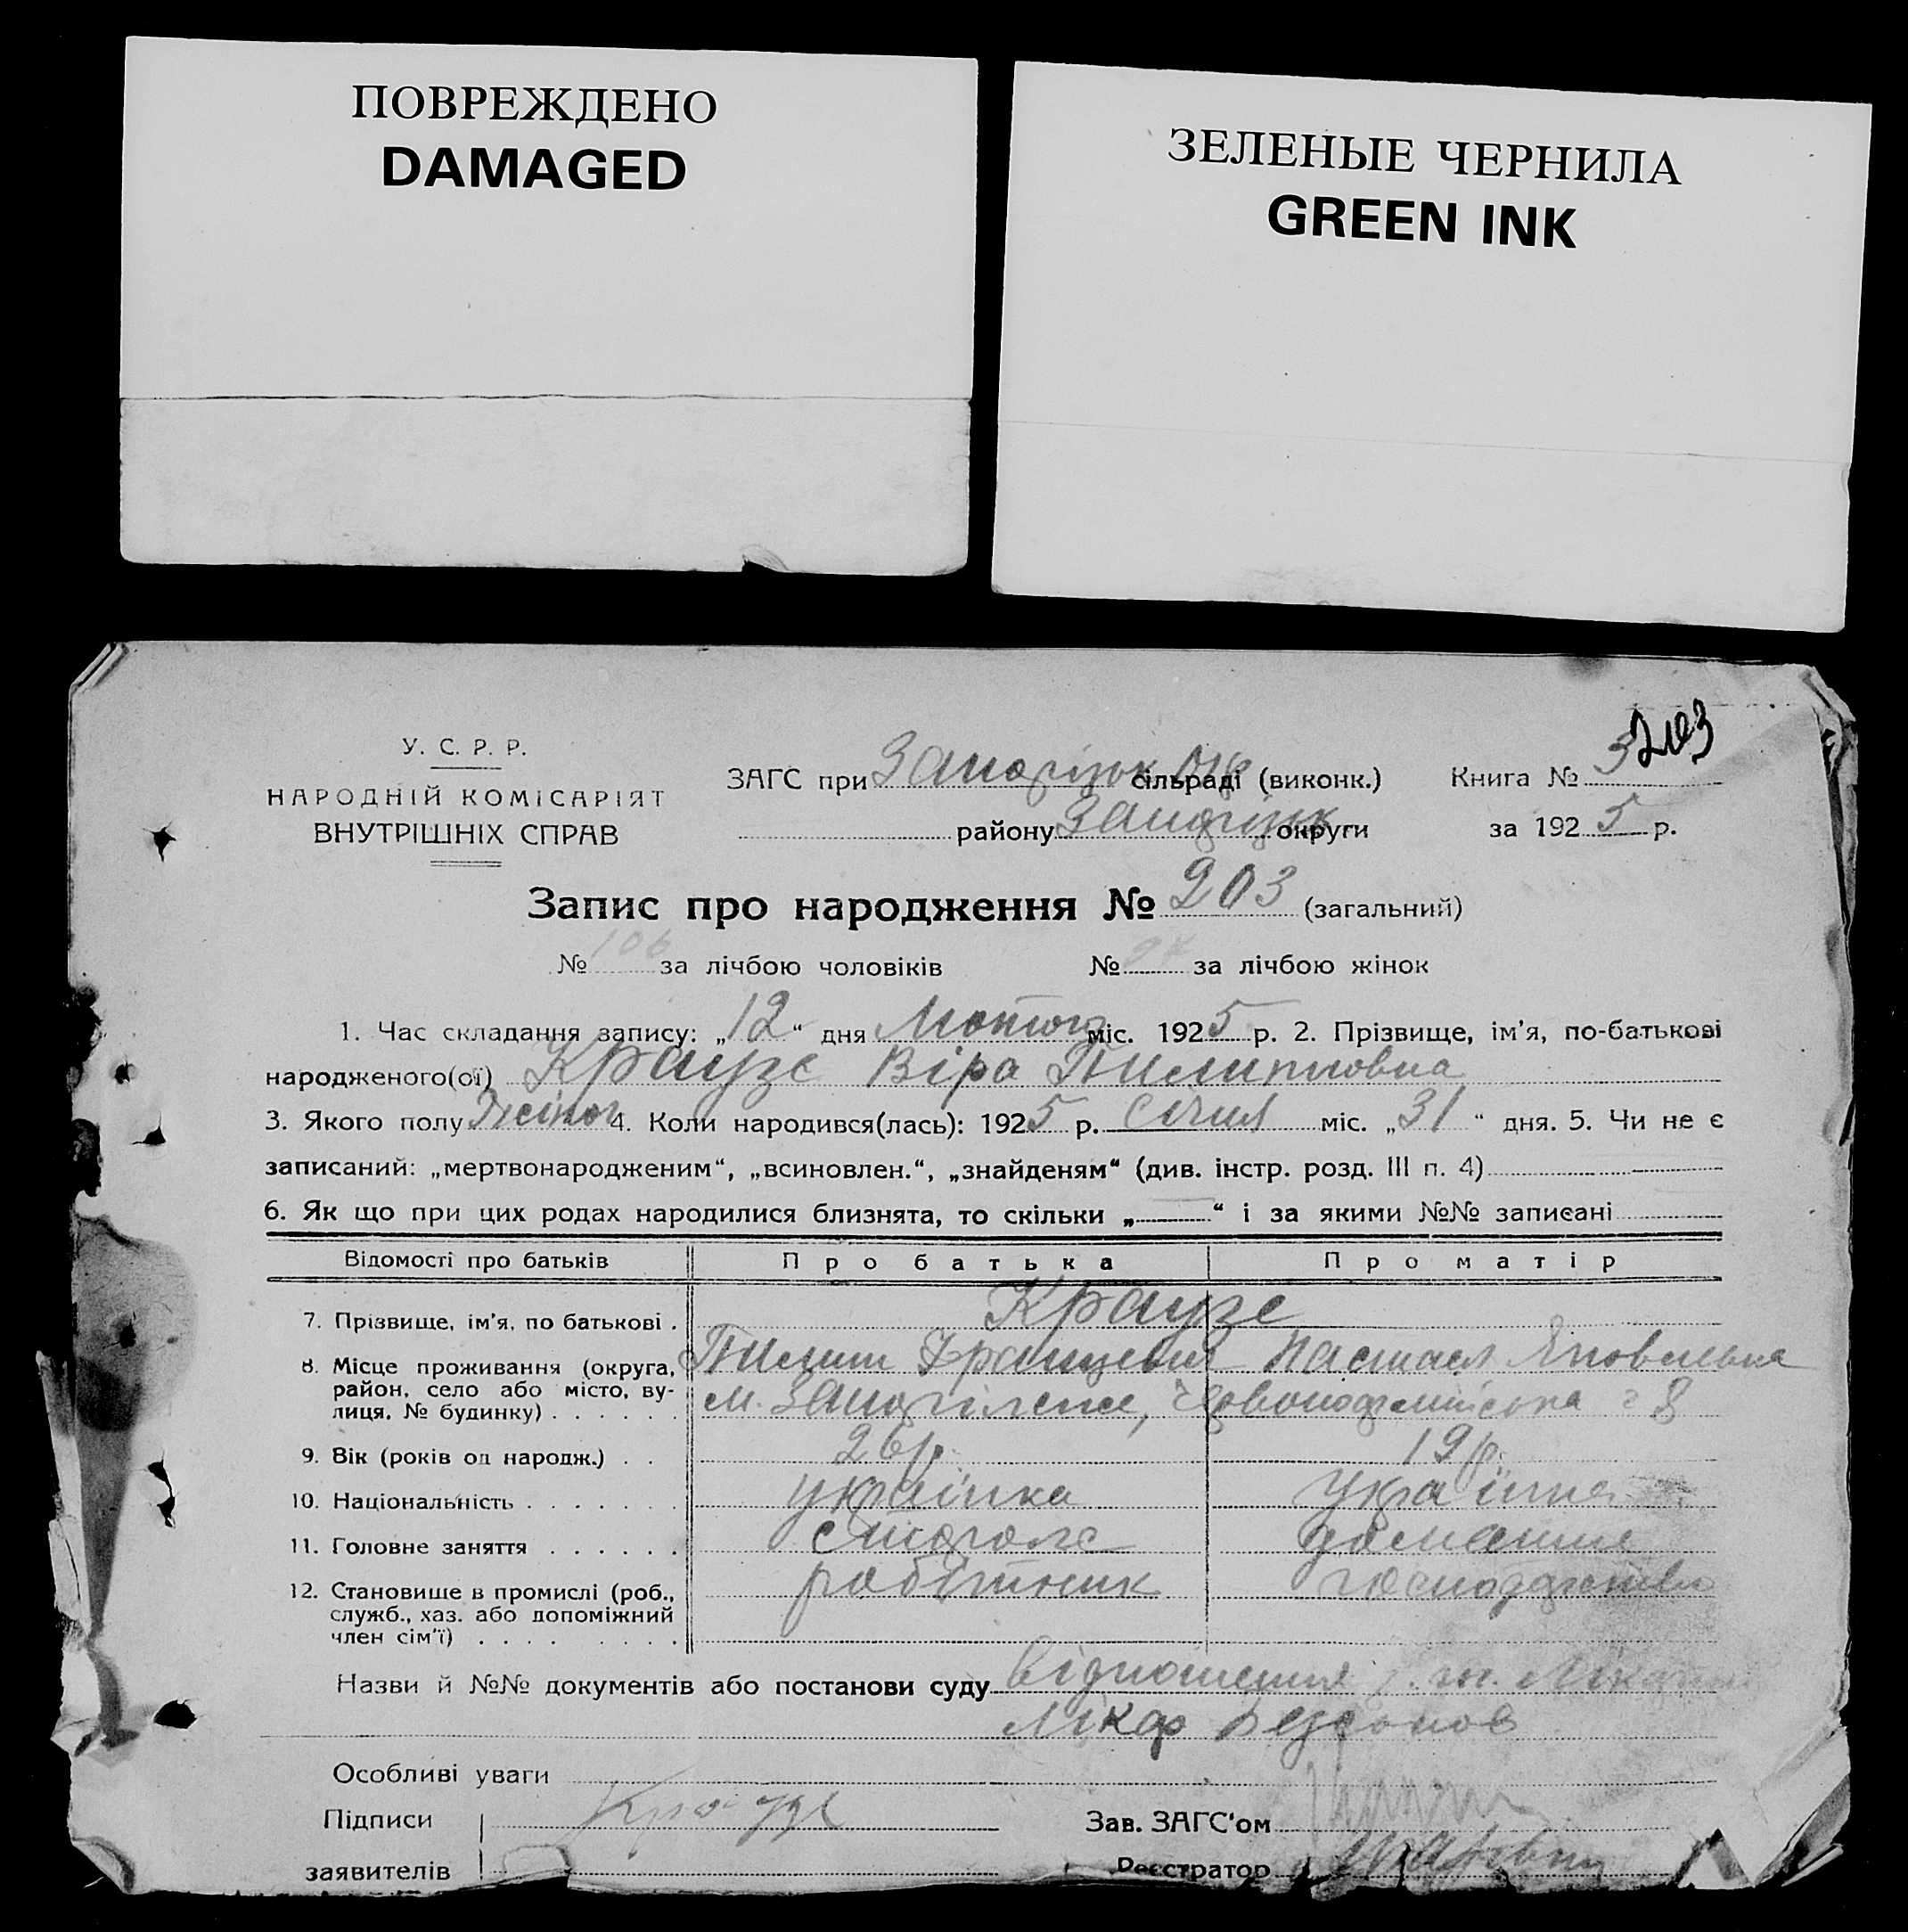 ПОВРЕЖДЕНО
DAMAGED
ЗЕЛЕНЫЕ ЧЕРНИЛА
GREEN INK
203
У. С. Р. Р.
НАРОДНІЙ КОМІСАРІЯТ
ВНУТРІШНІХ СПРАВ
ЗАГС при Запорізьк сільраді (виконк.) Книга № 3
району Запоріzьк округи за 1925 р.
Запис про народження № 203 (загальний)
№ 106 за лічбою чоловіків № 97 за лічбою жінок
1. Час складання запису: „12“ дня Лютого міс. 1925 р. 2. Прізвище, ім'я, по-батькові
народженого(ої) Краузе Віра Пилиповна
3. Якого полу Жіноч 4. Коли народився(лась): 1925 р. Січня міс. „31“ дня. 5. Чи не є
записаний: „мертвонародженим“, „всиновлен.“, „знайденям“ (див. інстр. розд. III п. 4)
6. Як що при цих родах народилися близнята, то скільки „—“ і за якими №№ записані
Відомості про батьків Про батька Про матір
7. Прізвище, ім'я, по батькові . Краузе
8. Місце проживання (округа, Пилип Францевич Настася Яковлевна
район, село або місто, ву- м. Запоріжжє, Червоноармійська 8
лиця, № будинку) . . . . . .
9. Вік (років од народж.) . . 26 р. 19 р.
10. Національність . . . . . . . українка українка
11. Головне заняття . . . . . . столяр домашнє
12. Становище в промислі (роб., робітник господарство
служб., хаз. або допоміжний
член сім'ї) . . . . . . . .
Назви й №№ документів або постанови суду Відношення
Лікар
Особливі уваги
Підписи Краузе Зав. ЗАГС'ом
заявителів Реєстратор